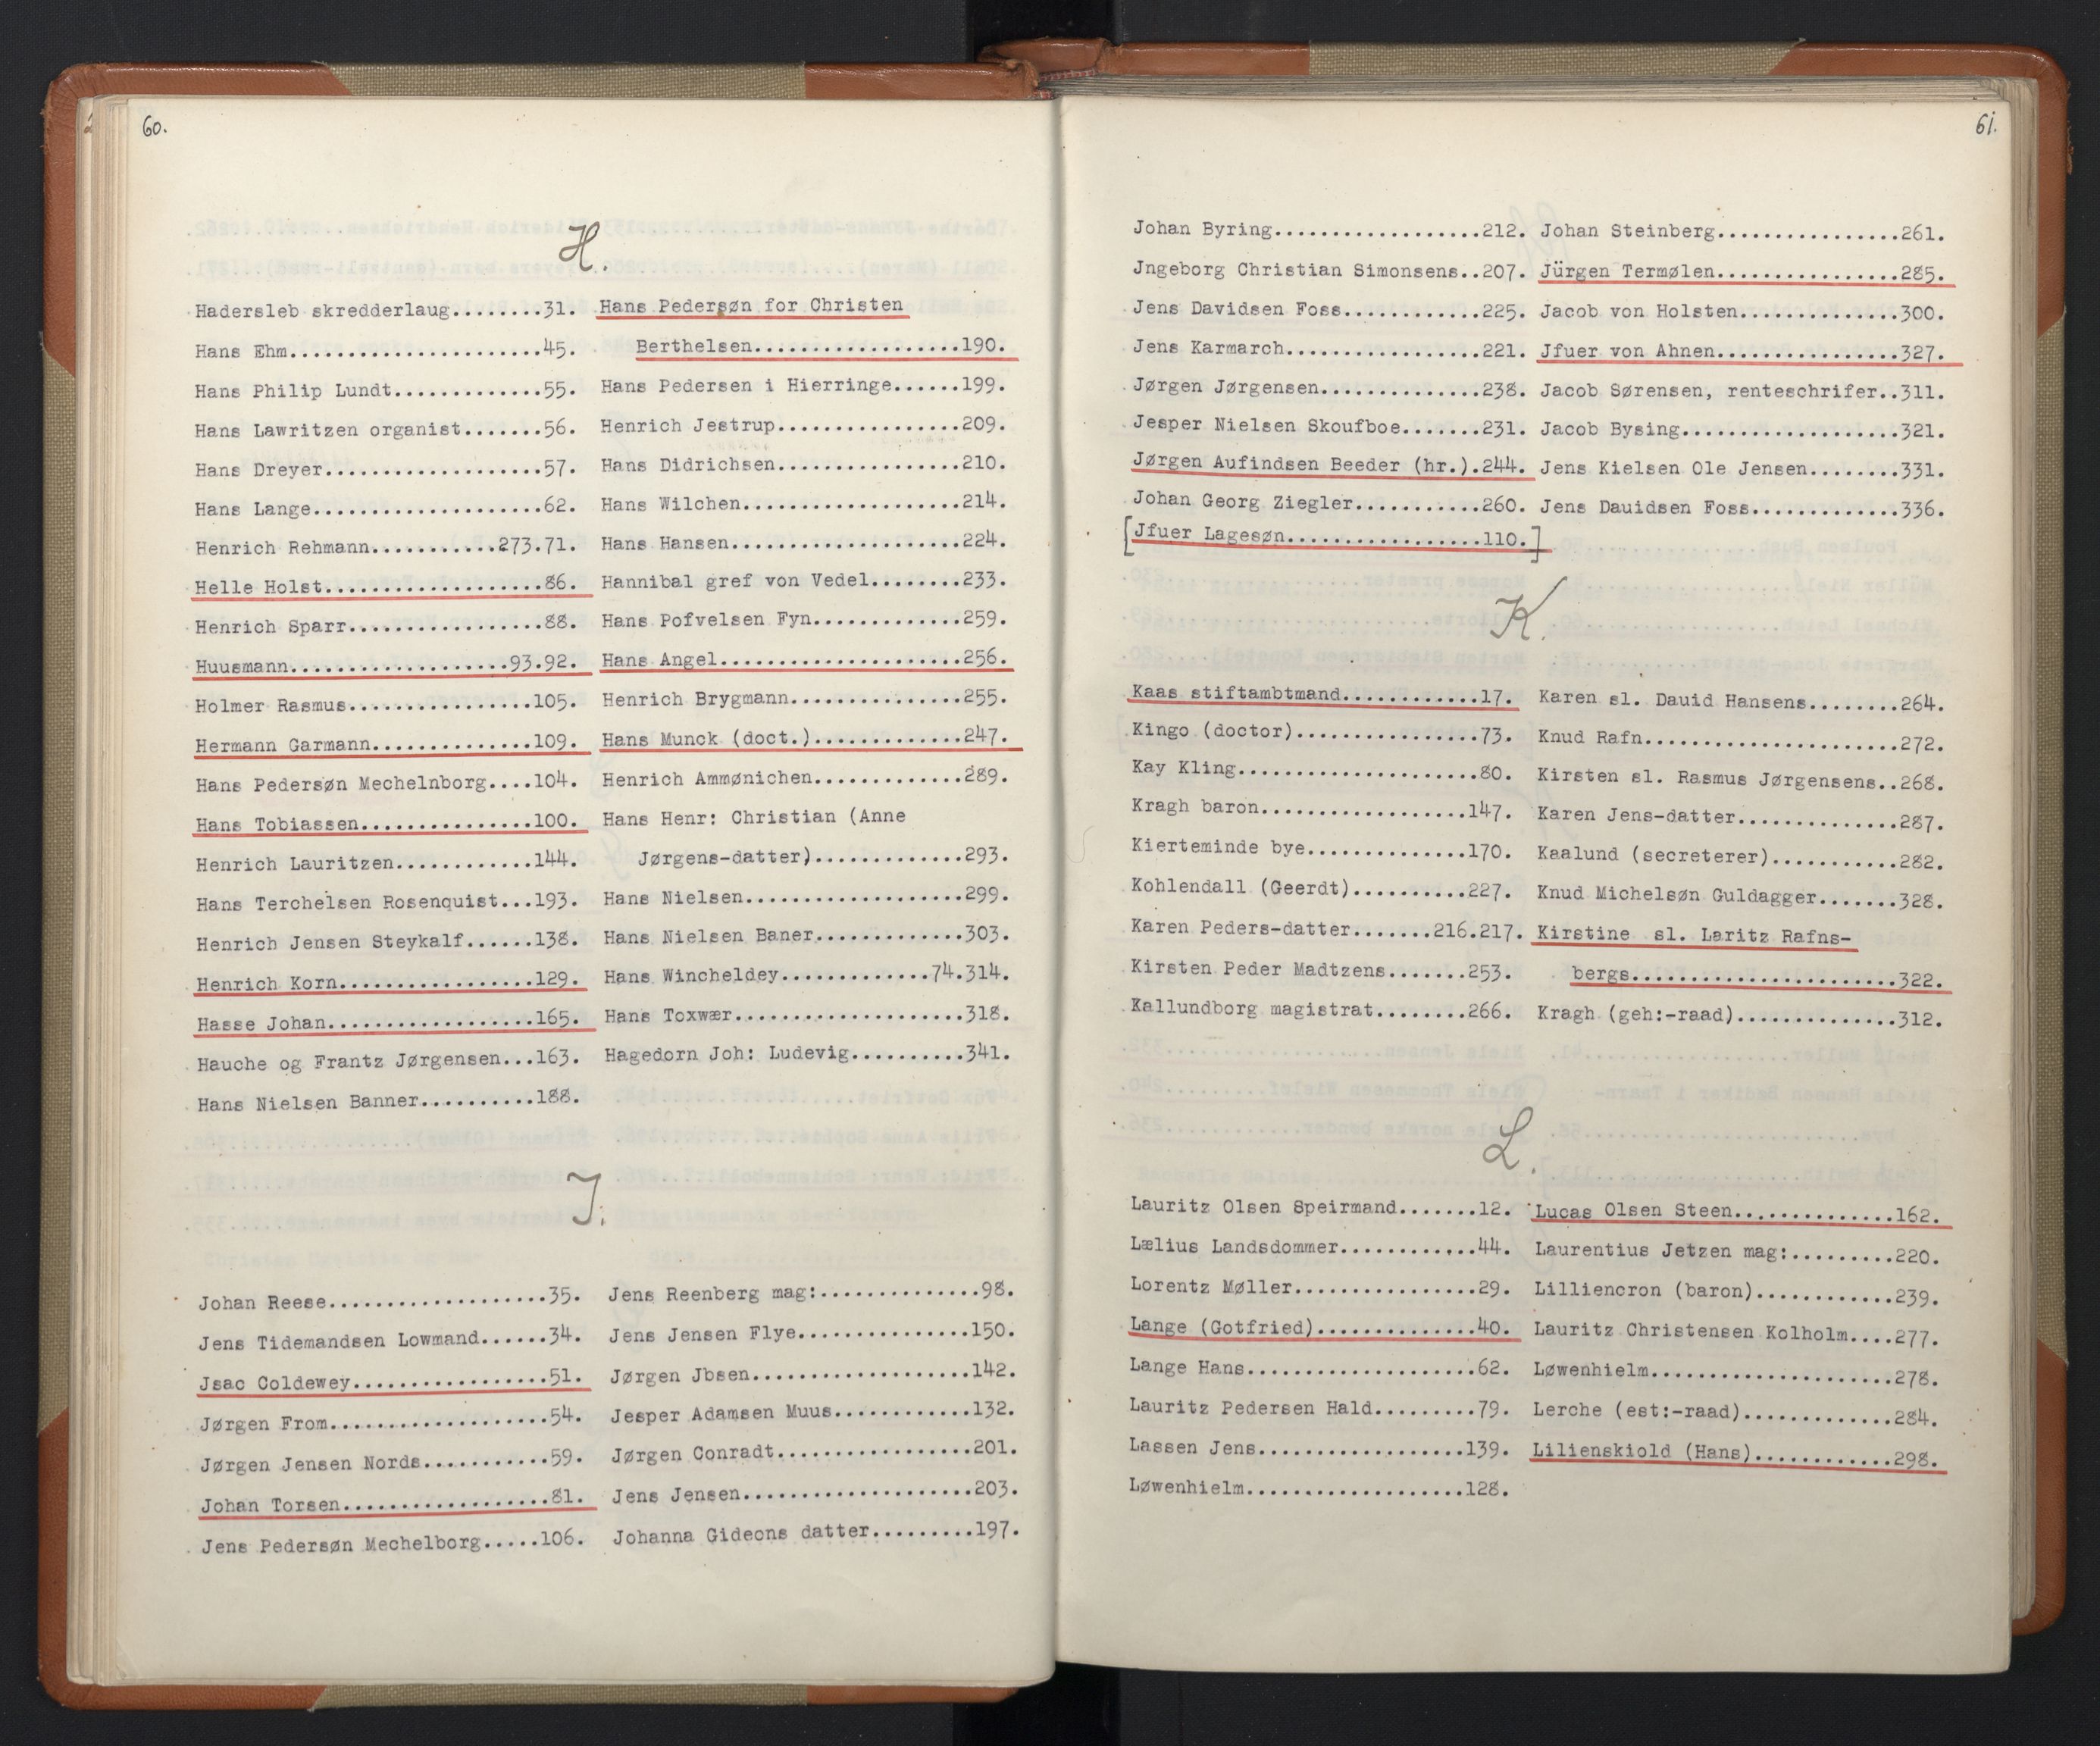 60.
H.
Hadersleb skredderlaug........31.
Hans Ehm......................45.
Hans Philip Lundt.............55.
Hans Lawritzen organist.......56.
Hans Dreyer...................57.
Hans Lange....................62.
Henrich Rehmann...........273.71.
Helle Holst...................86.
Henrich Sparr.................88.
Huusmann...................93.92.
Holmer Rasmus................105.
Hermann Garmann..............109.
Hans Pedersøn Mechelnborg....104.
Hans Tobiassen...............100.
Henrich Lauritzen............144.
Hans Terchelsen Rosenquist...193.
Henrich Jensen Steykalf......138.
Henrich Korn.................129.
Hasse Johan..................165.
Hauche og Frantz Jørgensen...163.
Hans Nielsen Banner..........188.
Hans Pedersøn for Christen
Berthelsen..................190.
Hans Pedersen i Hierringe......199.
Henrich Jestrup................209.
Hans Didrichsen................210.
Hans Wilchen...................214.
Hans Hansen....................224.
Hannibal gref von Vedel........233.
Hans Pofvelsen Fyn.............259.
Hans Angel.....................256.
Henrich Brygmann...............255.
Hans Munck (doct.).............247.
Henrich Ammønichen.............289.
Hans Henr: Christian (Anne
Jørgens-datter).............293.
Hans Nielsen...................299.
Hans Nielsen Baner.............303.
Hans Wincheldey.............74.314.
Hans Toxwær....................318.
Hagedorn Joh: Ludevig..........341.
J.
Johan Reese...................35.
Jens Tidemandsen Lowmand......34.
Jsac Coldewey.................51.
Jørgen From...................54.
Jørgen Jensen Nords...........59.
Johan Torsen..................81.
Jens Pedersøn Mechelborg.....106.
Jens Reenberg mag:..............98.
Jens Jensen Flye...............150.
Jørgen Jbsen...................142.
Jesper Adamsen Muus............132.
Jørgen Conradt.................201.
Jens Jensen....................203.
Johanna Gideons datter.........197.
61.
Johan Byring..................212.
Jngeborg Christian Simonsens..207.
Jens Davidsen Foss............225.
Jens Karmarch.................221.
Jørgen Jørgensen..............238.
Jesper Nielsen Skoufboe.......231.
Jørgen Aufindsen Beeder (hr.).244.
Johan Georg Ziegler...........260.
[Jfuer Lagesøn.................110.]
Johan Steinberg................261.
Jürgen Termølen................285.
Jacob von Holsten..............300.
Jfuer von Ahnen................327.
Jacob Sørensen, renteschrifer..311.
Jacob Bysing...................321.
Jens Kielsen Ole Jensen........331.
Jens Dauidsen Foss.............336.
K.
Kaas stiftambtmand............17.
Kingo (doctor)................73.
Kay Kling.....................80.
Kragh baron..................147.
Kierteminde bye..............170.
Kohlendall (Geerdt)..........227.
Karen Peders-datter.......216.217.
Kirsten Peder Madtzens.......253.
Kallundborg magistrat........266.
Karen sl. Dauid Hansens........264.
Knud Rafn......................272.
Kirsten sl. Rasmus Jørgensens..268.
Karen Jens-datter..............287.
Kaalund (secreterer)...........282.
Knud Michelsøn Guldagger.......328.
Kirstine sl. Laritz Rafns-
bergs.......................322.
Kragh (geh:-raad)..............312.
L.
Lauritz Olsen Speirmand.......12.
Lælius Landsdommer............44.
Lorentz Møller................29.
Lange (Gotfried)..............40.
Lange Hans....................62.
Lauritz Pedersen Hald.........79.
Lassen Jens..................139.
Løwenhielm...................128.
Lucas Olsen Steen..............162.
Laurentius Jetzen mag:.........220.
Lilliencron (baron)............239.
Lauritz Christensen Kolholm....277.
Løwenhielm.....................278.
Lerche (est:-raad).............284.
Lilienskiold (Hans)............298.